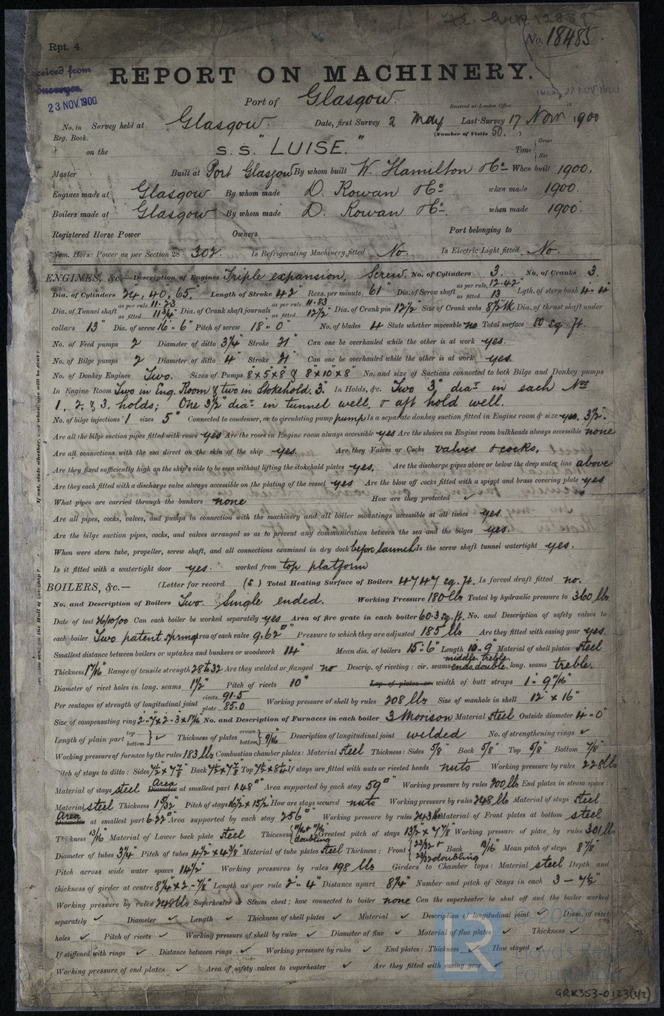 Rpt. 4.
No. 18485
REPORT ON MACHINERY.
23 NOV. 1900
Port of Glasgow.
Received at London Office
No. in Survey held at Glasgow. Date, first Survey 2 May Last Survey 17 Nov 1900
Reg. Book. (Number of Visits 50.)
on the S.S. "LUISE." Tons
Master Built at Port Glasgow By whom built W. Hamilton & Co. When built 1900.
Engines made at Glasgow By whom made D. Rowan & Co. when made 1900.
Boilers made at Glasgow By whom made D. Rowan & Co. when made 1900.
Registered Horse Power Owners Port belonging to
Nom. Horse Power as per Section 28 302 Is Refrigerating Machinery fitted No. Is Electric Light fitted No.
ENGINES, &c.—Description of Engines Triple expansion, Screw. No. of Cylinders 3. No. of Cranks 3.
Dia. of Cylinders 24, 40, 65. Length of Stroke 42" Revs. per minute 61 Dia. of Screw shaft as per rule 12.42 as fitted 13 Lgth. of stern bush 4-4
Dia. of Tunnel shaft as per rule 11.23 as fitted 11 3/4 Dia. of Crank shaft journals as per rule 11.83 as fitted 12 1/2 Dia. of Crank pin 12 1/2 Size of Crank webs Dia. of thrust shaft under
collars 13" Dia. of screw 16-6 Pitch of screw 18-0 No. of blades 4 State whether moveable no Total surface 80 sq ft.
No. of Feed pumps 2 Diameter of ditto 3 3/4 Stroke 21" Can one be overhauled while the other is at work yes.
No. of Bilge pumps 2 Diameter of ditto 4" Stroke 21" Can one be overhauled while the other is at work yes.
No. of Donkey Engines Two. Sizes of Pumps 8x5x8 & 8x10x8" No. and size of Suctions connected to both Bilge and Donkey pumps
In Engine Room Two in Eng. Room & two in Stokehold. 3" In Holds, &c. Two 3" diar. in each Nos
1, 2, & 3, holds; One 3 1/2" diar. in tunnel well, & aft hold well.
No. of bilge injections 1 sizes 5" Connected to condenser, or to circulating pump pump Is a separate donkey suction fitted in Engine room & size yes, 3 1/2"
Are all the bilge suction pipes fitted with roses yes Are the roses in Engine room always accessible yes Are the sluices on Engine room bulkheads always accessible none
Are all connections with the sea direct on the skin of the ship yes. Are they Valves or Cocks valves & cocks.
Are they fixed sufficiently high on the ship's side to be seen without lifting the stokehold plates yes. Are the discharge pipes above or below the deep water line above
Are they each fitted with a discharge valve always accessible on the plating of the vessel yes Are the blow off cocks fitted with a spigot and brass covering plate yes
What pipes are carried through the bunkers none How are they protected ✓
Are all pipes, cocks, valves, and pumps in connection with the machinery and all boiler mountings accessible at all times yes.
Are the bilge suction pipes, cocks, and valves arranged so as to prevent any communication between the sea and the bilges yes.
When were stern tube, propeller, screw shaft, and all connections examined in dry dock before launch Is the screw shaft tunnel watertight yes.
Is it fitted with a watertight door yes. worked from top platform
BOILERS, &c.— (Letter for record (S) Total Heating Surface of Boilers 4747 sq. ft. Is forced draft fitted no.
No. and Description of Boilers Two Single ended. Working Pressure 180 lbs Tested by hydraulic pressure to 360 lbs
Date of test 26/10/00 Can each boiler be worked separately yes Area of fire grate in each boiler 60.3 sq. ft. No. and Description of safety valves to
each boiler Two patent spring Area of each valve 9.62" Pressure to which they are adjusted 185 lbs Are they fitted with easing gear yes.
Smallest distance between boilers or uptakes and bunkers or woodwork 14" Mean dia. of boilers 15-6 Length 10-9" Material of shell plates steel
Thickness 1 7/16 Range of tensile strength 28 & 32 Are they welded or flanged no Descrip. of riveting: cir. seams middle treble ends double long. seams treble.
Diameter of rivet holes in long. seams 1 1/2" Pitch of rivets 10" Lap of plates or width of butt straps 1-9 7/16
Per centages of strength of longitudinal joint rivets 91.5 plate 85.0 Working pressure of shell by rules 208 lbs Size of manhole in shell 12" x 16"
Size of compensating ring 2-7x2-3x1 7/16 No. and Description of Furnaces in each boiler 3 Morison Material steel Outside diameter 4-0"
Length of plain part top bottom ✓ Thickness of plates crown bottom 9/16 Description of longitudinal joint welded No. of strengthening rings ✓
Working pressure of furnace by the rules 183 lbs Combustion chamber plates: Material steel Thickness: Sides 5/8" Back 5/8" Top 5/8" Bottom 7/8"
Pitch of stays to ditto: Sides Back Top If stays are fitted with nuts or riveted heads nuts Working pressure by rules 228 lbs
Material of stays steel Area at smallest part 1.48" Area supported by each stay 59" Working pressure by rules 200 lbs End plates in steam space
Material steel Thickness 1 3/32 Pitch of stays 16 1/2 x 15 1/2 How are stays secured nuts Working pressure by rules 248 lbs Material of stays steel
Area at smallest part 6.22" Area supported by each stay 256" Working pressure by rules 243 lbs Material of Front plates at bottom steel
Thickness 13/16 Material of Lower back plate steel Thickness doubling Greatest pitch of stays 13 1/2 x 7 7/8 Working pressure of plate by rules 301 lbs
Diameter of tubes 3 1/4 Pitch of tubes 4 1/2 x 4 3/8 Material of tube plates steel Thickness: Front doubling Back Mean pitch of stays 8 7/8"
Pitch across wide water spaces 14 1/2" Working pressures by rules 198 lbs Girders to Chamber tops: Material steel Depth and
thickness of girder at centre 8 3/4 x 2-7/8" Length as per rule 2-4" Distance apart 8 3/4" Number and pitch of Stays in each 3 - 7 1/2"
Working pressure by rules 248 lbs Superheater or Steam chest; how connected to boiler none Can the superheater be shut off and the boiler worked
separately ✓ Diameter ✓ Length ✓ Thickness of shell plates ✓ Material ✓ Description of longitudinal joint ✓ Diam. of rivet
holes ✓ Pitch of rivets ✓ Working pressure of shell by rules ✓ Diameter of flue ✓ Material of flue plates ✓ Thickness ✓
If stiffened with rings ✓ Distance between rings ✓ Working pressure by rules ✓ End plates: Thickness ✓ How stayed ✓
Working pressure of end plates ✓ Area of safety valves to superheater ✓ Are they fitted with easing gear ✓
GRK353-0123(1/2)